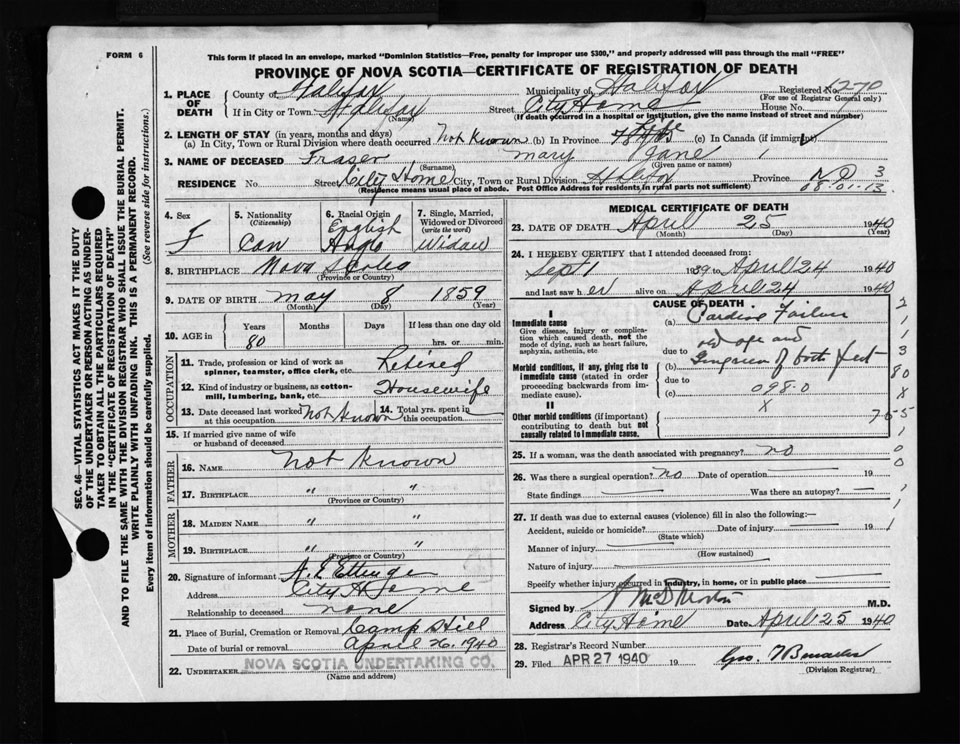 FORM 6
This form if placed in an envelope, marked "Dominion Statistics—Free, penalty for improper use $300," and properly addressed will pass through the mail "FREE"
PROVINCE OF NOVA SCOTIA—CERTIFICATE OF REGISTRATION OF DEATH
1. PLACE OF DEATH
County of Halifax
Municipality of Halifax
Registered No. 1270
(For use of Registrar General only)
If in City or Town Halifax
(Name)
Street City Home
House No.
(If death occurred in a hospital or institution, give the name instead of street and number)
2. LENGTH OF STAY (in years, months and days)
(a) In City, Town or Rural Division where death occurred Not Known (b) In Province (c) In Canada (if immigrant)
3. NAME OF DECEASED Fraser Mary Jane
(Surname) (Given name or names)
RESIDENCE No. Street City Home City, Town or Rural Division Halifax Province N S 3
(Residence means usual place of abode. Post Office Address for residents in rural parts not sufficient)
08.01.13
4. Sex
F
5. Nationality
(Citizenship)
Can
6. Racial Origin
English
Anglo
7. Single, Married, Widowed or Divorced
(write the word)
Widow
8. BIRTHPLACE Nova Scotia
(Province or Country)
9. DATE OF BIRTH May 8 1859
(Month) (Day) (Year)
10. AGE in
Years Months Days If less than one day old
80 hrs. or min.
OCCUPATION
11. Trade, profession or kind of work as spinner, teamster, office clerk, etc. Retired
12. Kind of industry or business, as cotton-mill, lumbering, bank, etc. Housewife
13. Date deceased last worked at this occupation Not Known
14. Total yrs. spent in this occupation
15. If married give name of wife or husband of deceased
FATHER
16. NAME Not Known
17. BIRTHPLACE " "
(Province or Country)
MOTHER
18. MAIDEN NAME " "
19. BIRTHPLACE " "
(Province or Country)
20. Signature of informant A. E Ettinger
Address City Home
Relationship to deceased none
21. Place of Burial, Cremation or Removal Camp Hill
Date of burial or removal April 26. 1940
22. UNDERTAKER NOVA SCOTIA UNDERTAKING CO.
(Name and address)
MEDICAL CERTIFICATE OF DEATH
23. DATE OF DEATH April 25 1940
(Month) (Day) (Year)
24. I HEREBY CERTIFY that I attended deceased from:
Sept 1 1939 to April 24 1940
and last saw her alive on April 24 1940
CAUSE OF DEATH
I
Immediate cause
Give disease, injury or complication which caused death, not the mode of dying, such as heart failure, asphyxia, asthenia, etc
(a) Cardiac Failure
Morbid conditions, if any, giving rise to immediate cause (stated in order proceeding backwards from immediate cause).
due to
(b) old age and
Gangrene of both feet
due to
(c) 098.0
X
II
Other morbid conditions (if important) contributing to death but not causally related to immediate cause.
25. If a woman, was the death associated with pregnancy? no
26. Was there a surgical operation? no Date of operation 19
State findings Was there an autopsy?
27. If death was due to external causes (violence) fill in also the following:—
Accident, suicide or homicide? Date of injury 19
(State which)
Manner of injury
(How sustained)
Nature of injury
Specify whether injury occurred in industry, in home, or in public place
Signed by M.D.
Address City Home Date April 25 1940
28. Registrar's Record Number
29. Filed APR 27 1940 19
Geo.
(Division Registrar)
SEC. 46—VITAL STATISTICS ACT MAKES IT THE DUTY
OF THE UNDERTAKER OR PERSON ACTING AS UNDER-
TAKER TO OBTAIN ALL THE PARTICULARS REQUIRED
IN THE "CERTIFICATE OF REGISTRATION OF DEATH"
AND TO FILE THE SAME WITH THE DIVISION REGISTRAR WHO SHALL ISSUE THE BURIAL PERMIT.
WRITE PLAINLY WITH UNFADING INK. THIS IS A PERMANENT RECORD.
Every item of information should be carefully supplied. (See reverse side for instructions.)